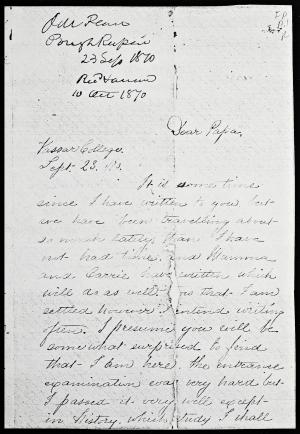 Poughkeepsie
23 Sep 1870
10 Oct 1870
Dear Papa,
Vassar College.
Sept. 23. 
It is some time
since I have written to you but
we have been travelling about
so much lately that I have
not had time, and Mamma
and Carrie have written which
will do as well. Now that I am
settled however I intend writing
often. I presume you will be
somewhat surprised to find
that I am here. The entrance
examination was very hard but
I passed it very well except
in History, which study I shall